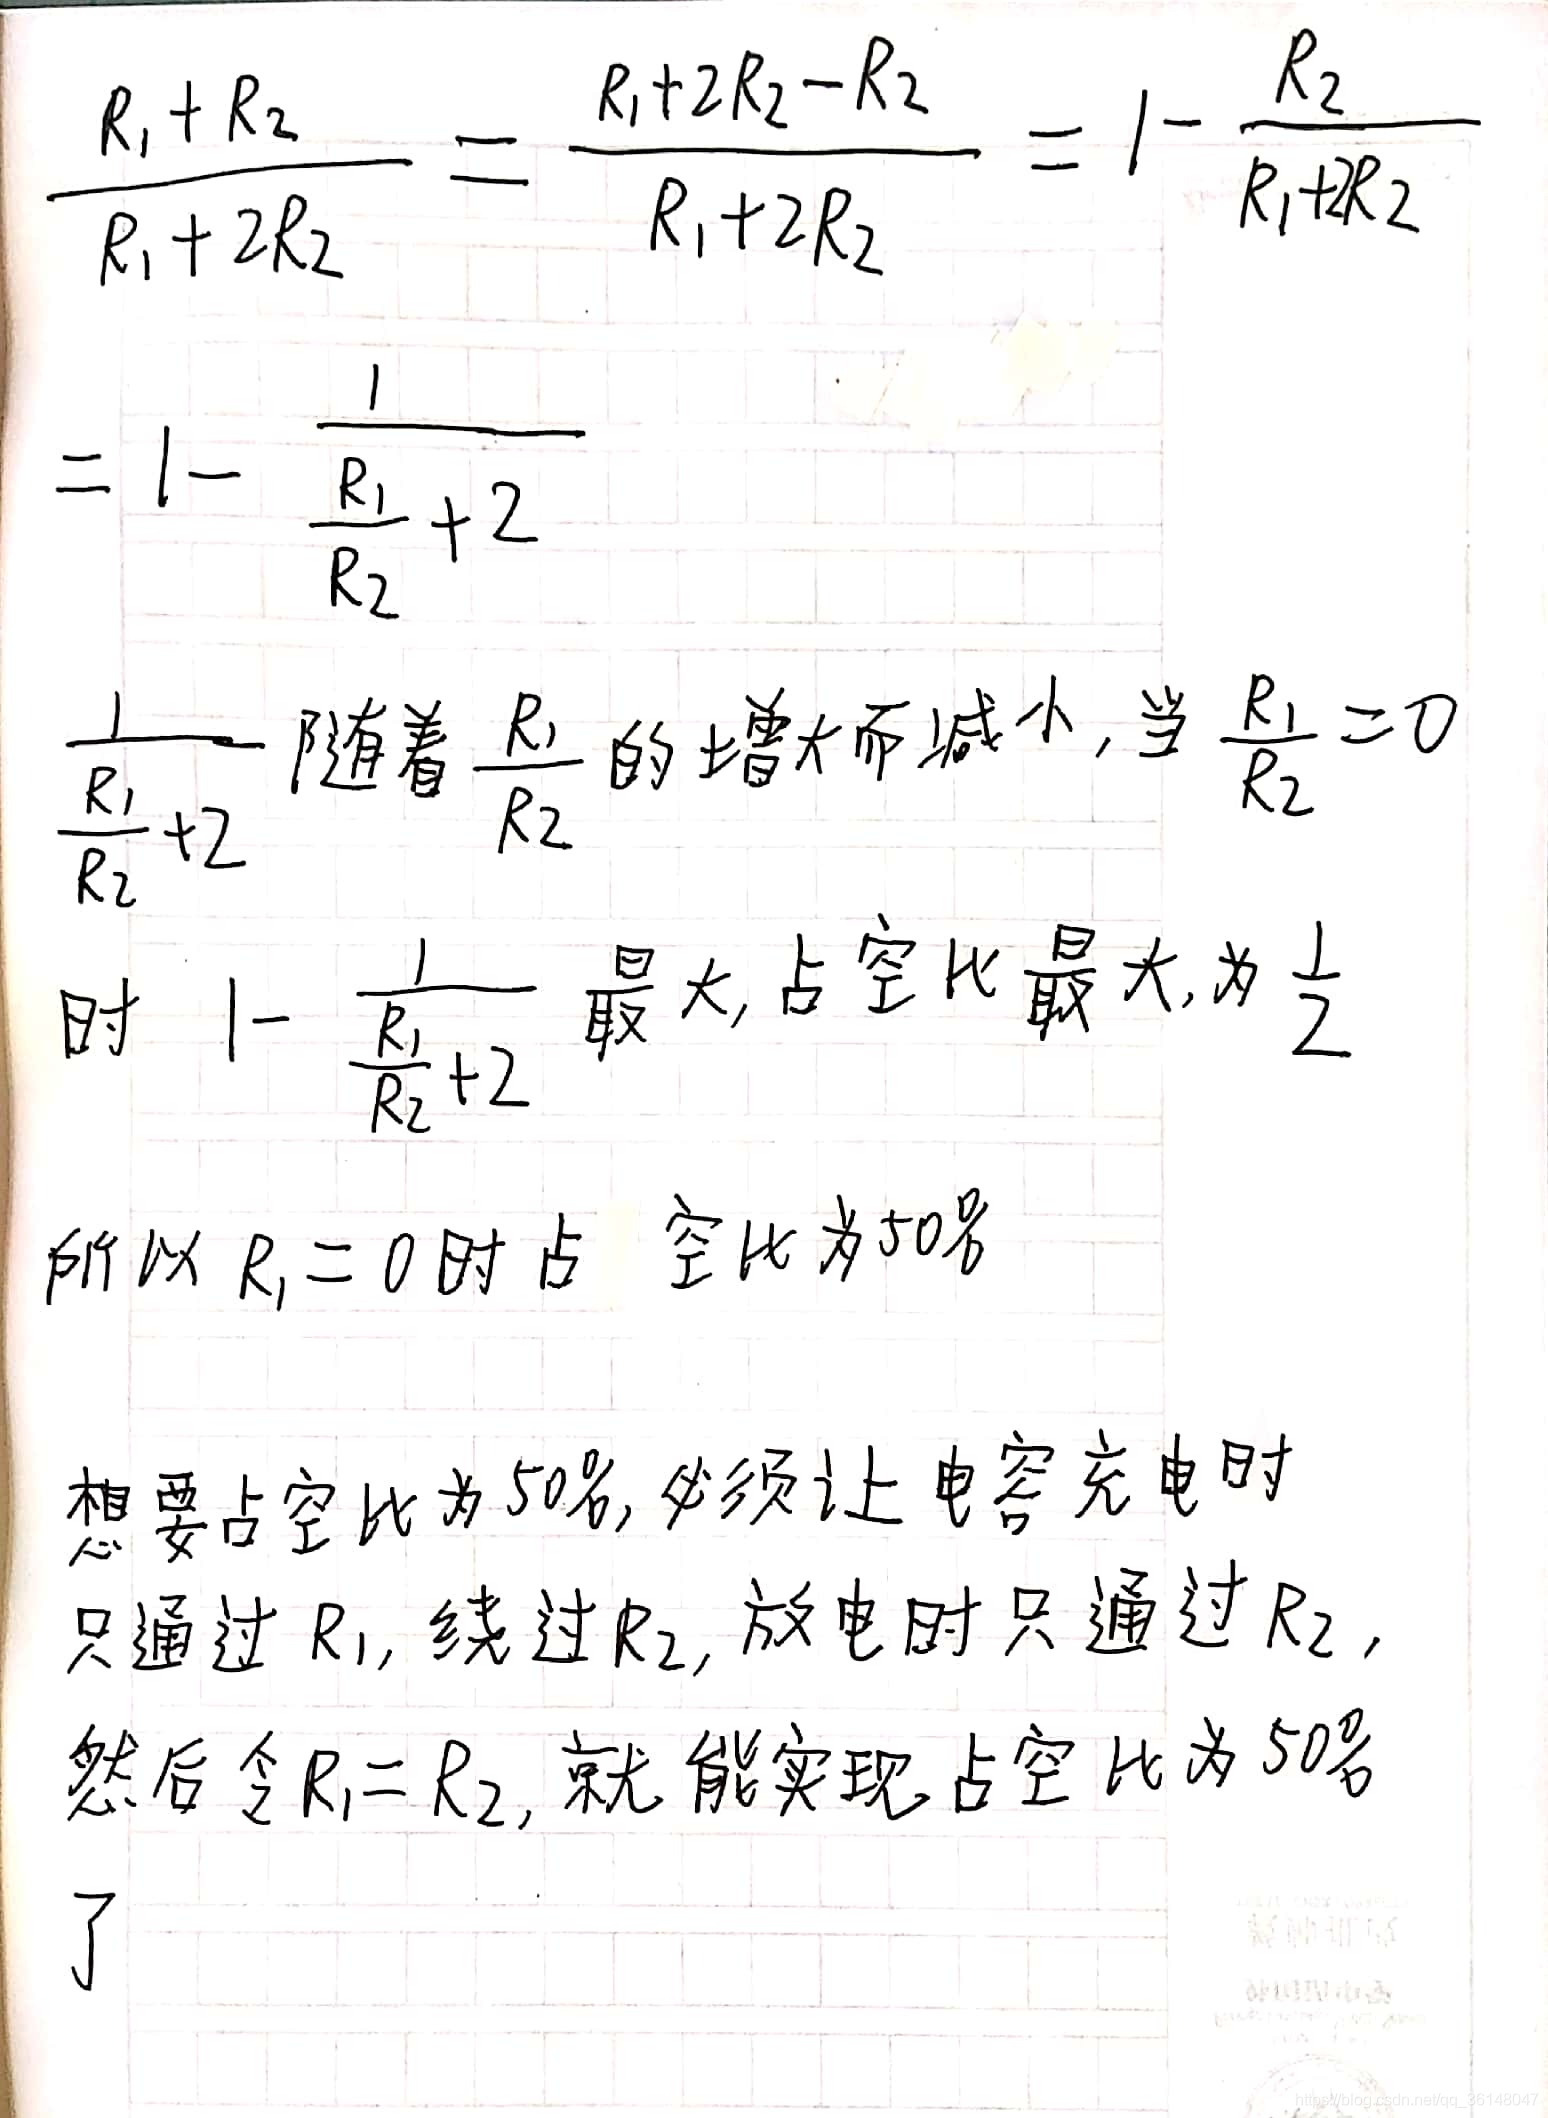 (R₁+R₂)/(R₁+2R₂) = (R₁+2R₂-R₂)/(R₁+2R₂) = 1 - R₂/(R₁+2R₂)
= 1 - 1/(R₁/R₂ + 2)
1/(R₁/R₂ + 2) 随着 R₁/R₂ 的增大而减小, 当 R₁/R₂ = 0
时 1 - 1/(R₁/R₂ + 2) 最大, 占空比最大, 为 1/2
所以 R₁ = 0 时占 空比为50%
想要占空比为50%, 必须让电容充电时
只通过 R₁, 绕过R₂, 放电时只通过R₂,
然后令R₁=R₂, 就能实现占空比为50%
了
https://blog.csdn.net/qq_36148047